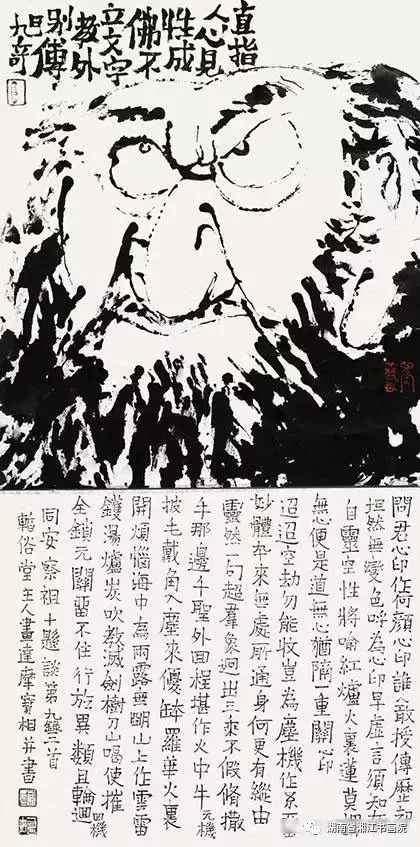 直指
人心見
性成
佛不
立文字
教外
别傳
旭奇
問君心印作何顏心印誰敢授傳歷劫
坦然無變色呼為心印早虛言須知本
自靈空性將喻紅爐火裏蓮莫謂
無心便是道無心猶隔一重關心印
迢迢空劫勿能收豈為塵機作系留
妙體本來無處所通身何更有縱由
靈然一句超羣象迥出三乘不假脩撒
手那邊千聖外回程堪作火中牛元機
披毛戴角入塵來優缽羅華火裏
開煩惱海中為雨露無明山上作雲雷
鑊湯爐炭吹教滅劍樹刀山喝使摧
金鎖元關留不住行於異類且輪迴回機
同安察祖十懸談第九錄三首
暫俗堂主人畫達摩寶相并書
湖南省湘江书画院